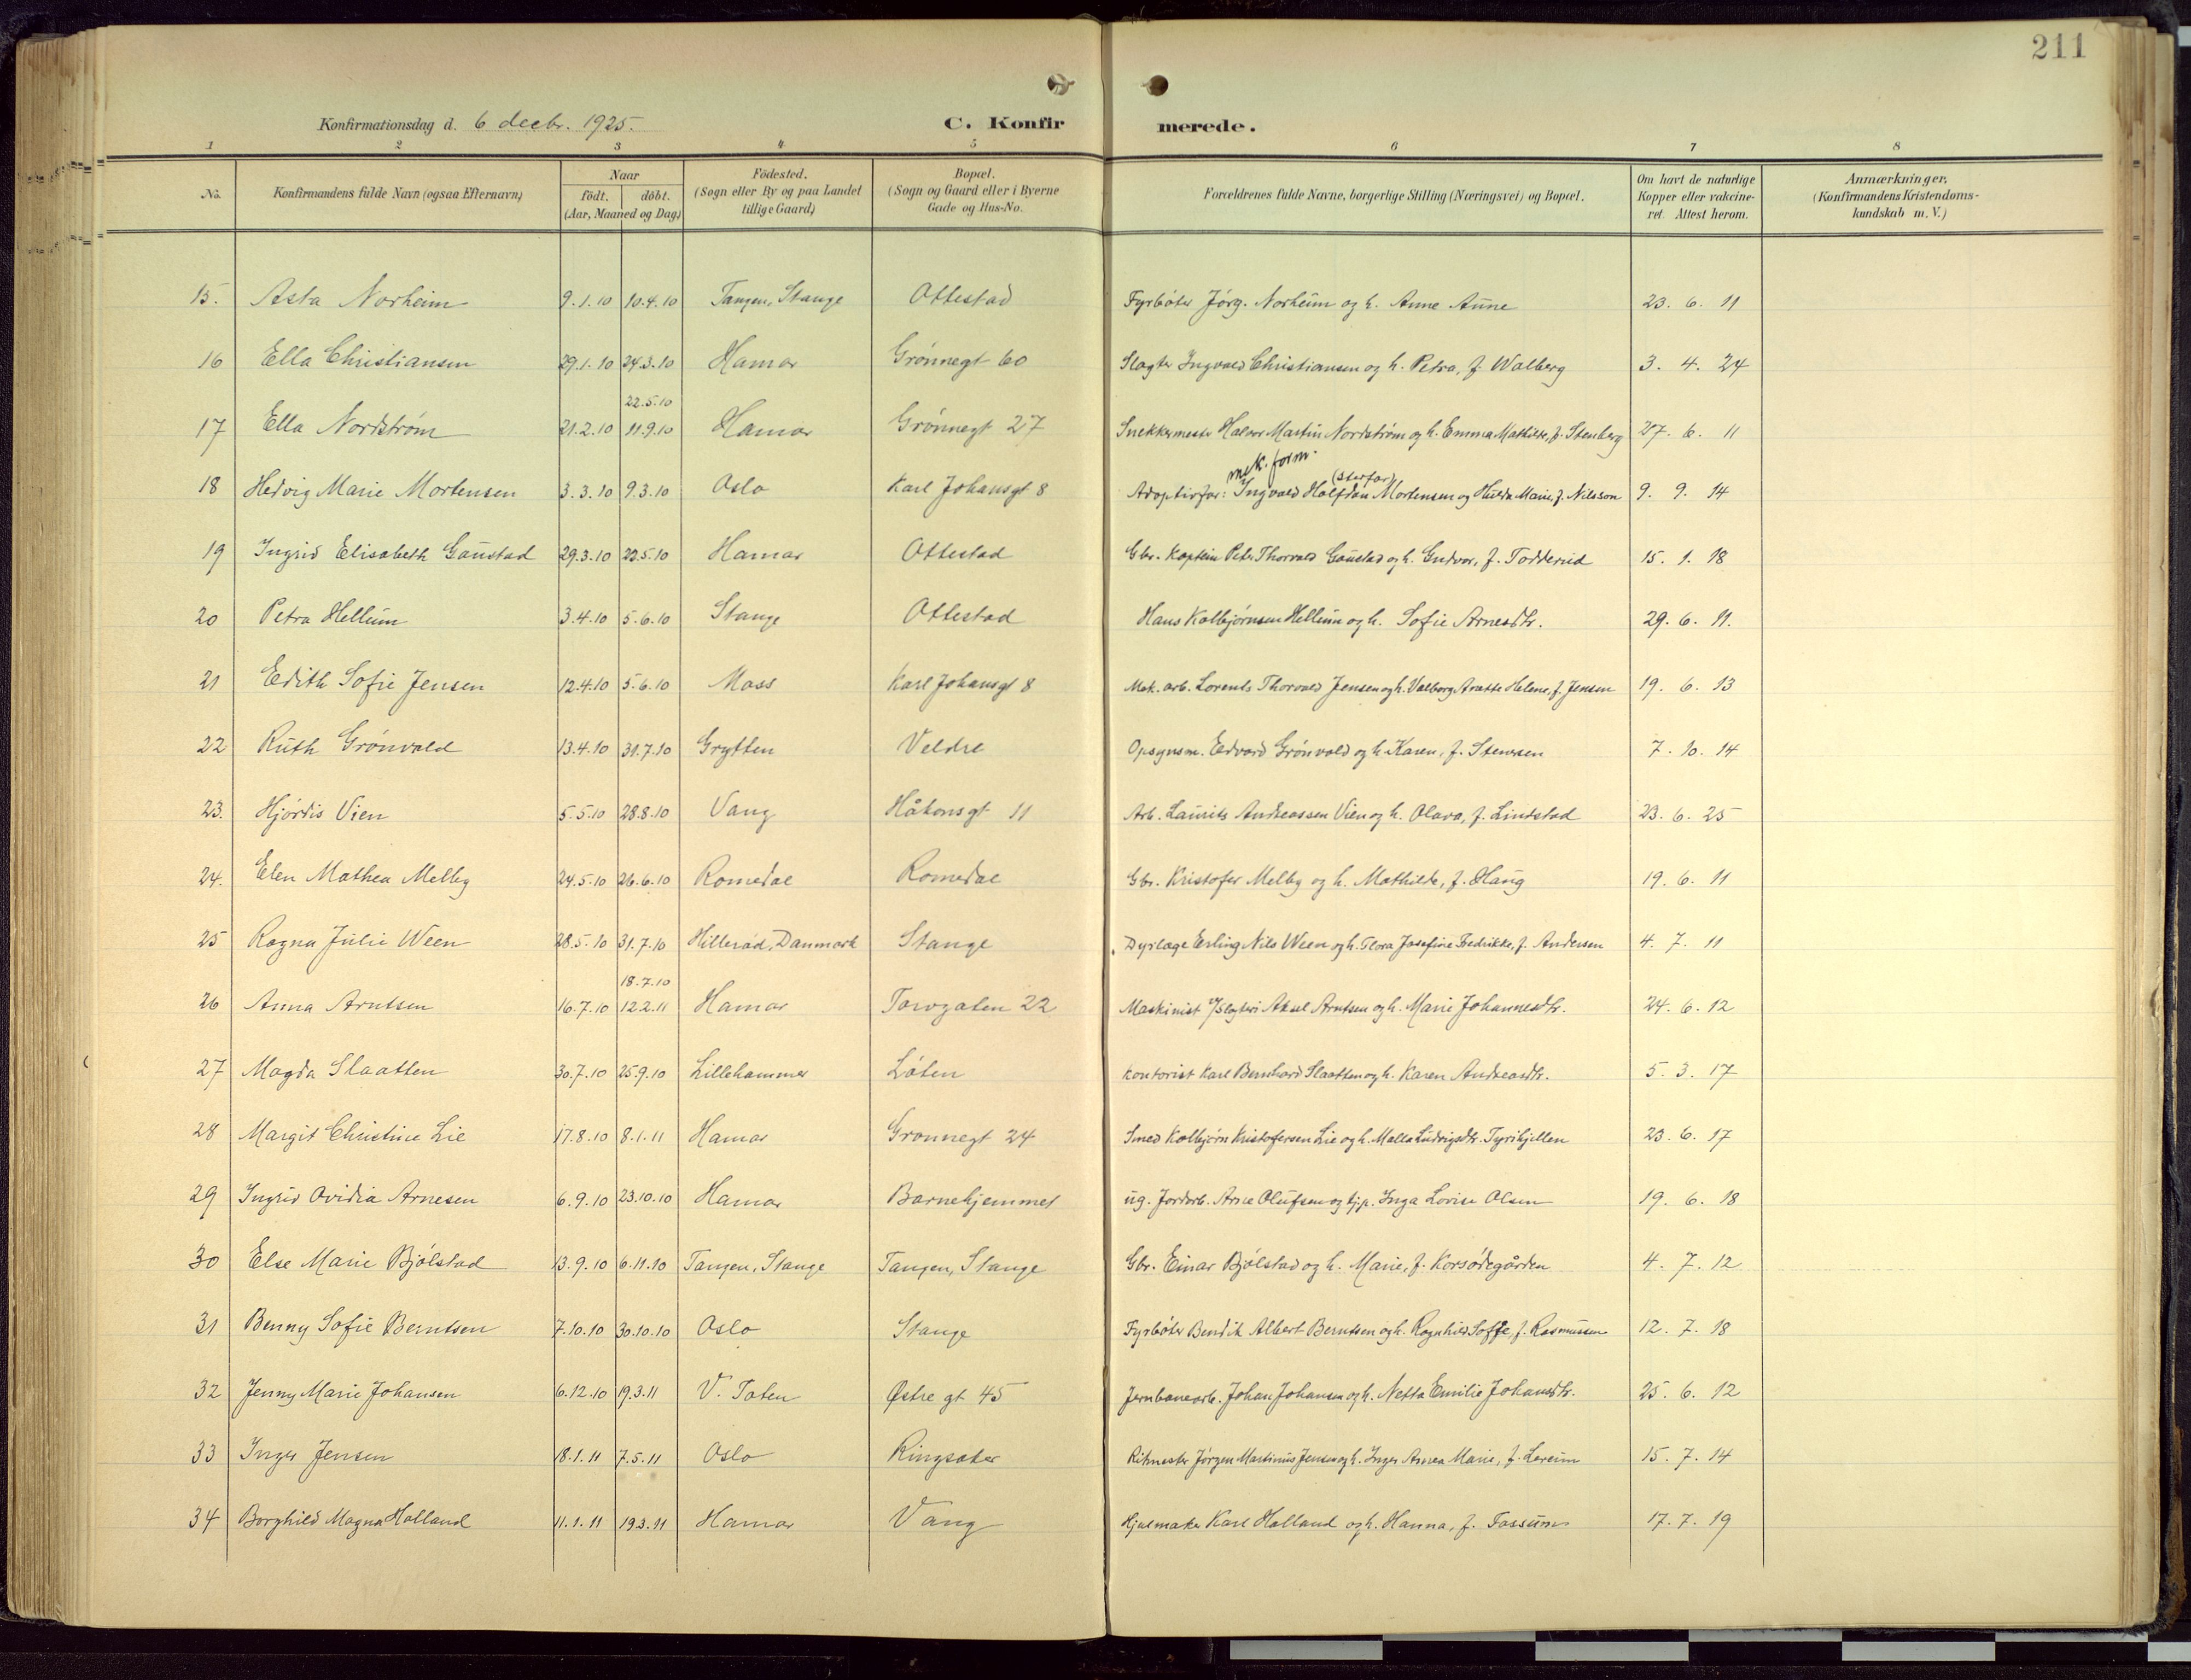 211
Konfirmationsdag d. 6 decbr. 1925. C. Konfir merede.
1 2 3 4 5 6 7 8
No. Konfirmandens fulde Navn (ogsaa Efternavn) Naar födt. döbt. (Aar, Maaned og Dag) Födested. (Sogn eller By og paa Landet tillige Gaard) Bopæl. (Sogn og Gaard eller i Byerne Gade og Hus-No. Forældrenes fulde Navne, borgerlige Stilling (Næringsvei) og Bopæl. Om havt de naturlige Kopper eller vakcineret. Attest herom. Anmærkninger, (Konfirmandens Kristendomskundskab m. V.)
15. Asta Norheim 9.1.10 10.4.10 Tangen, Stange Ottestad Fyrbøter Jørg. Norheim og h. Anne Aune 23. 6. 11
16 Ella Christiansen 29.1.10 24.3.10 Hamar Grønnegt 60 Slagter Ingvald Christiansen og h. Petra, f. Walberg 3. 4. 24
22.5.10
17 Ella Nordstrøm 21.2.10 11.9.10 Hamar Grønnegt 27 Snekkermester Halvor Martin Nordstrøm og h. Emma Mathilde, f. Stenberg 27. 6. 11
mek. form. (stepfar)
18 Hedvig Marie Mortensen 3.3.10 9.3.10 Oslo Karl Johansgt 8 Adoptivfor: Ingvald Halfdan Mortensen og Hulda Marie, f. Nilsson 9. 9. 14
19 Ingrid Elisabeth Gaustad 29.3.10 22.5.10 Hamar Ottestad Gbr. Kaptein Peter Thorvald Gaustad og h. Gudvor, f. Todderud 15. 1. 18
20 Petra Hellum 3.4.10 5.6.10 Stange Ottestad Hans Kolbjørnsen Hellum og h. Sofie Arnesdtr. 29. 6. 11.
21 Edith Sofie Jensen 12.4.10 5.6.10 Moss Karl Johansgt 8 Mek. arb. Lorents Thorvald Jensen og h. Valborg Helene, f. Jensen 19. 6. 13
22 Ruth Grønvold 13.4.10 31.7.10 Grytten Veldre Opsynsm. Edvard Grønvold og h. Karen, f. Stensen 7. 10. 14
23. Hjørdis Vien 5.5.10 28.8.10 Vang Håkonsgt 11 Arb. Laurits Andreassen Vien og h. Olava, f. Lindstad 23. 6. 25
24. Elen Mathea Melby 24.5.10 26.6.10 Romedal Romedal Gbr. Kristofer Melby og h. Mathilde, f. Haug 19. 6. 11
25 Ragna Julie Ween 28.5.10 31.7.10 Hillerød, Danmark Stange Dyrlæge Erling Nils Ween og h. Flora Josefine Fredrikke, f. Andersen 4. 7. 11
18.7.10
26 Anna Arntsen 16.7.10 12.2.11 Hamar Torvgaten 22 Maskinist v/Slagteri Aksel Arntsen og h. Marie Johannesdtr. 24. 6. 12
27 Magda Slaatten 30.7.10 25.9.10 Lillehammer Løten Kontorist Karl Bernhard Slaatten og h. Karen Andreasdtr. 5. 3. 17
28 Margit Christine Lie 17.8.10 8.1.11 Hamar Grønnegt 24 Smed Kolbjørn Kristofersen Lie og h. Malla Ludvigsdtr. Tyrihjellen 23. 6. 17
29 Ingrid Ovidia Arnesen 6.9.10 23.10.10 Hamar Barnehjemmet ug. Jordarb. Arne Olufsen og tjp. Inga Lovise Olsen 19. 6. 18
30 Else Marie Bjølstad 13.9.10 6.11.10 Tangen, Stange Tangen, Stange Gbr. Einar Bjølstad og h. Marie, f. Korsødegården 4. 7. 12
31 Benny Sofie Berntsen 7.10.10 30.10.10 Oslo Stange Fyrbøter Bendik Albert Berntsen og h. Ragnhild Soffe, f. Rasmussen 12. 7. 18
32 Jenny Marie Johansen 6.12.10 19.3.11 V. Toten Østre gt 45 Jernbanearb. Johan Johansen og h. Netta Emilie Johansdtr. 25. 6. 12
33 Inger Jensen 18.1.11 7.5.11 Oslo Ringsaker Ritmester Jørgen Martinus Jensen og h. Inger Annea Marie, f. Lereim 15. 7. 14
34 Borghild Magna Holland 11.1.11 19.3.11 Hamar Vang Hjulmaker Karl Holland og h. Hanna, f. Fossum 17. 7. 19